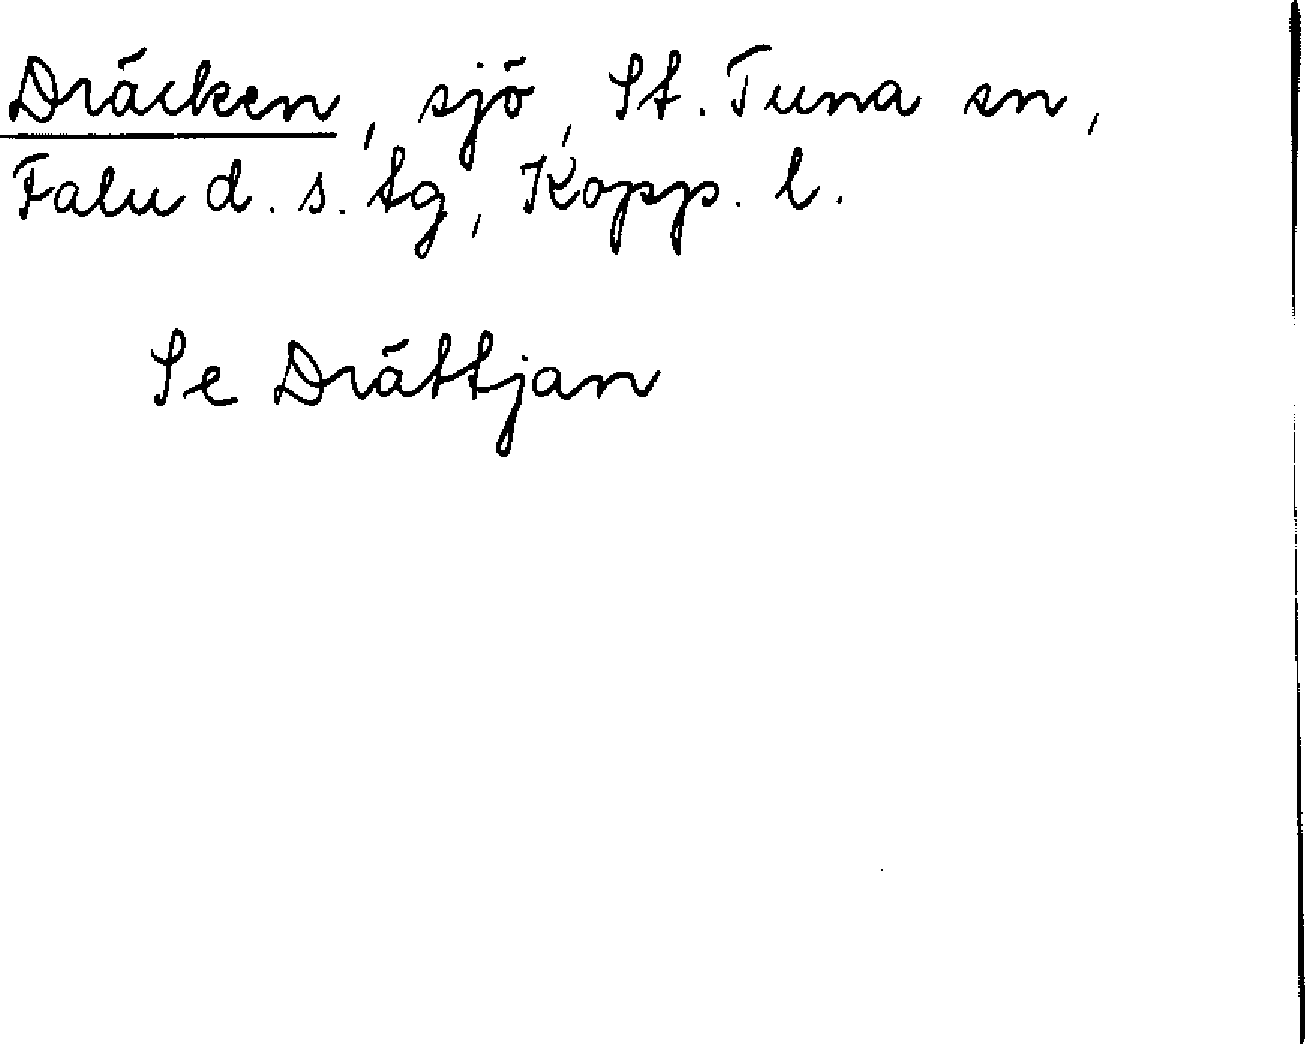 Dräcken, sjö, St. Tuna sn,
Falu d. s. tg, Kopp. l.
Se Drättjan